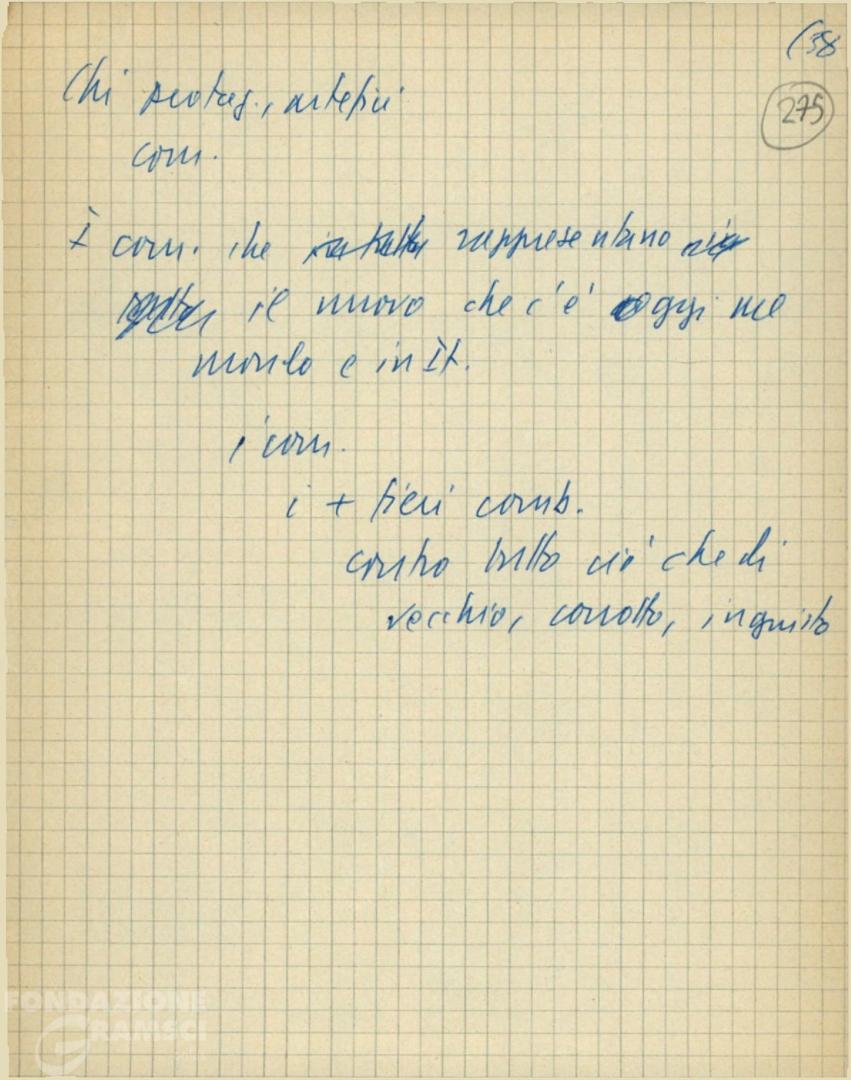 (38
275
Chi protag., artefici
com.
I com. che rappresentano
il nuovo che c'è oggi nel
mondo e in It.
i com.
i + fieri comb.
contro tutto ciò che di
vecchio, corrotto, ingiusto
FONDAZIONE
GRAMSCI